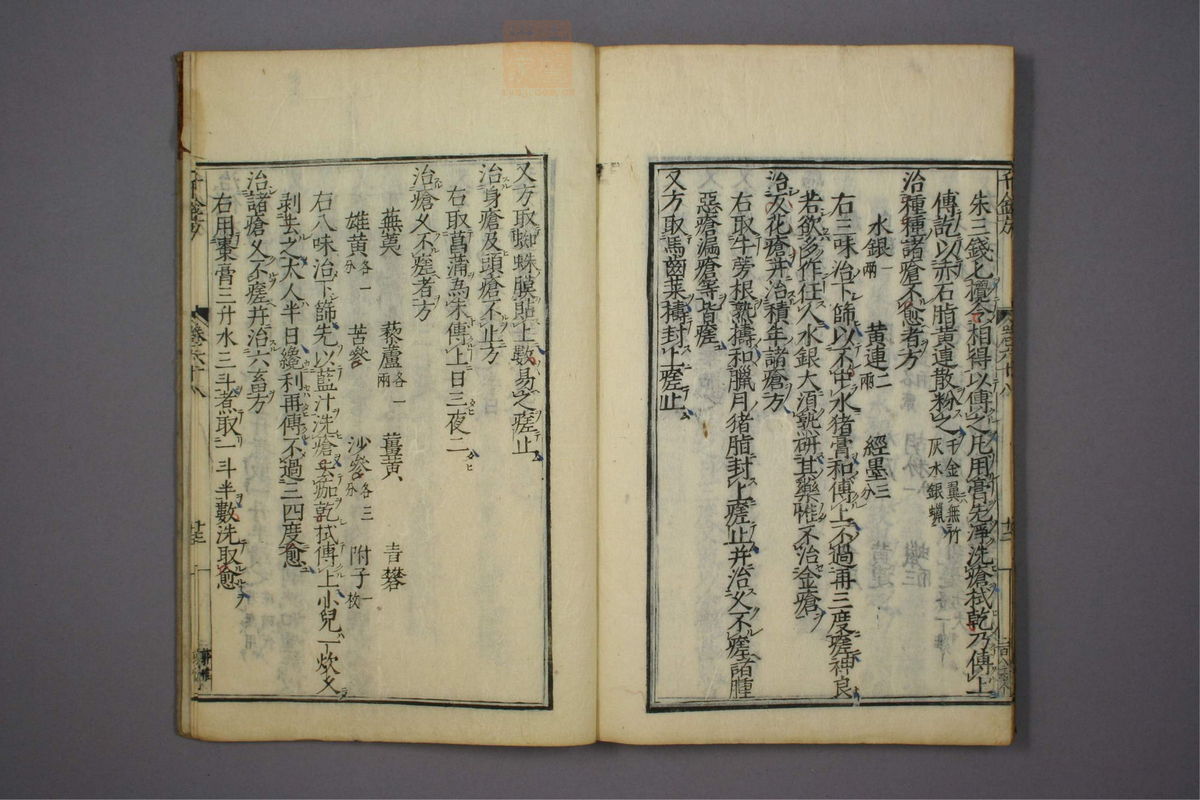 朱三錢匕攪令相得以傅之凡用膏先淨洗瘡拭乾乃傅上
傅訖以赤石脂黃連散粉之千金翼無竹灰水銀蠟
治種種諸瘡不愈者方
水銀一兩 黃連二兩 經墨三分
右三味治下篩以不中水猪膏和傅上不過再三度瘥神良
若欲多作任人水銀大須熟研其藥惟不治金瘡
治反花瘡并治積年諸瘡方
右取牛蒡根熟擣和臘月猪脂封上瘥止并治久不瘥諸腫
惡瘡漏瘡等皆瘥
又方取馬齒菜擣封上瘥止
又方取蜘蛛膜貼上數易之瘥止
治身瘡及頭瘡不止方
右取菖蒲為末傅上日三夜二
治瘡久不瘥者方
蕪荑 藜蘆各一兩 薑黃 青礬
雄黃各一分 苦參 沙參各三分 附子一枚
右八味治下篩先以藍汁洗瘡去痂乾拭傅上小兒一炊久
剥去之大人半日纔利再傅不過三四度愈
治諸瘡久不瘥并治六畜方
右用棗膏三升水三斗煮取一斗半數洗取愈
千金方